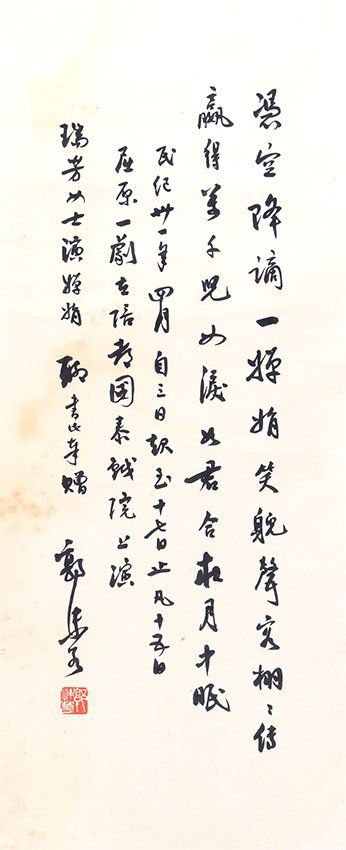 憑空降謫一嬋娟笑貌聲容栩〻傳
贏得萬千兒女淚如君合在月中眠
民紀卅一年四月自三日起至十七日止凡十五日
屈原一劇在陪都國泰戲院上演
瑞芳女士演嬋娟 聊書此奉贈 郭沫若